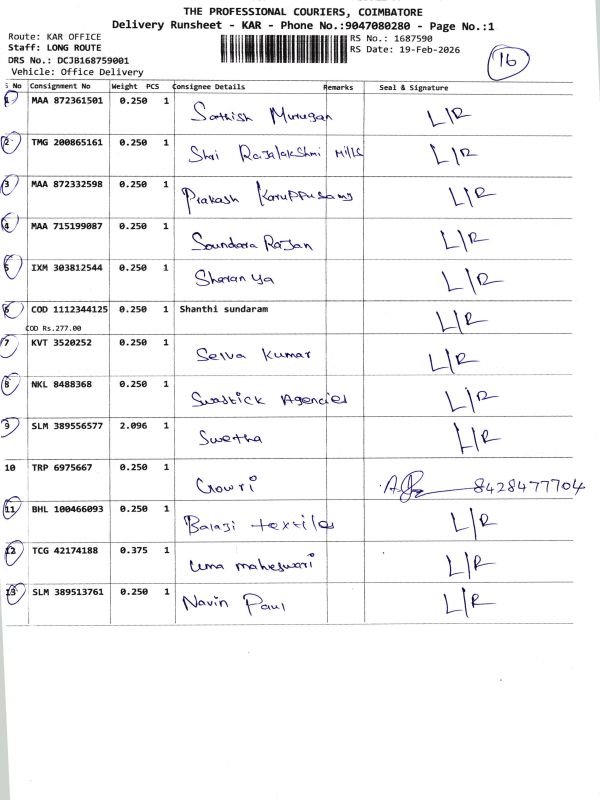 THE PROFESSIONAL COURIERS, COIMBATORE
Delivery Runsheet - KAR - Phone No.:9047080280 - Page No.:1
Route: KAR OFFICE
RS No.: 1687590
Staff: LONG ROUTE
RS Date: 19-Feb-2026
DRS No.: DCJB168759001
Vehicle: Office Delivery
16
S No Consignment No Weight PCS Consignee Details Remarks Seal & Signature
1 MAA 872361501 0.250 1 Sathish Murugan L/R
2 TMG 200865161 0.250 1 Shri Rajalakshmi Mills L/R
3 MAA 872332598 0.250 1 Prakash Karuppusamy L/R
4 MAA 715199087 0.250 1 Soundara Rajan L/R
5 IXM 303812544 0.250 1 Sharanya L/R
6 COD 1112344125 0.250 1 Shanthi sundaram L/R
COD Rs.277.00
7 KVT 3520252 0.250 1 Selva Kumar L/R
8 NKL 8488368 0.250 1 Swastick Agencies L/R
9 SLM 389556577 2.096 1 Swetha L/R
10 TRP 6975667 0.250 1 Gowri 8428477704
11 BHL 100466093 0.250 1 Balaji textiles L/R
12 TCG 42174188 0.375 1 Uma maheswari L/R
13 SLM 389513761 0.250 1 Navin Paul L/R